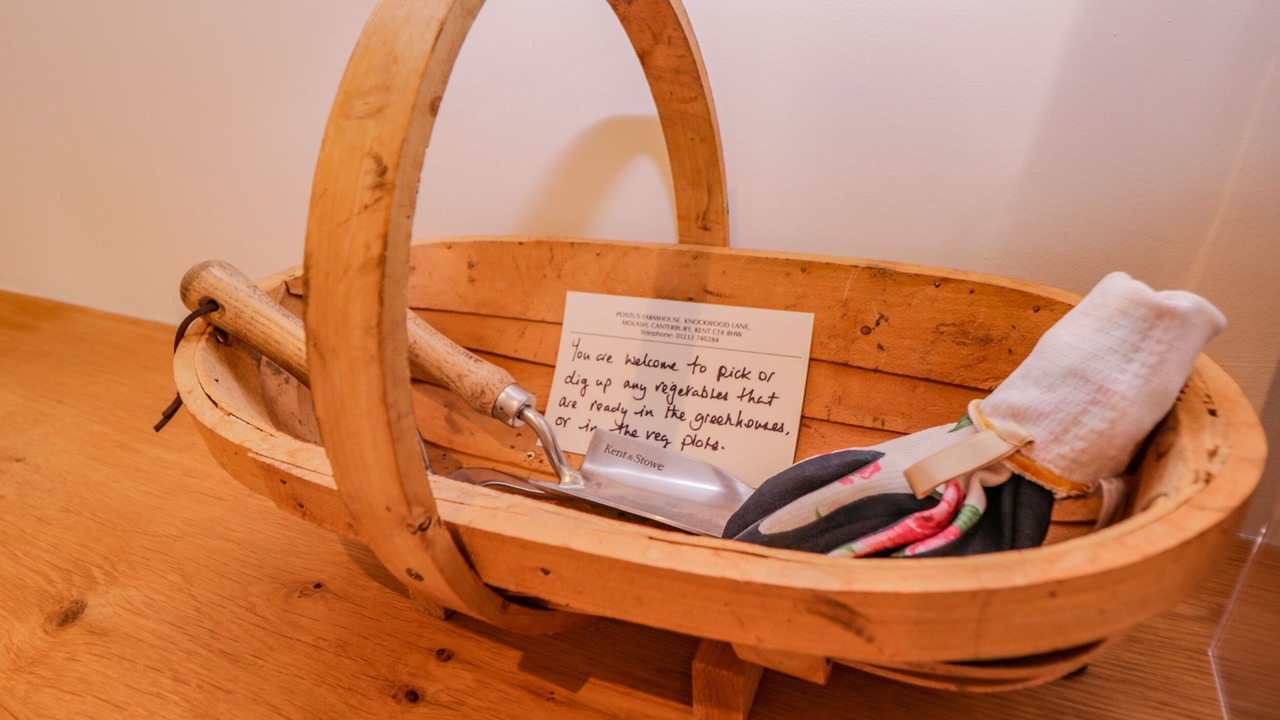 PONTUS FARMHOUSE, KNOCKWOOD LANE,
MOLASH, CANTERBURY, KENT CT4 8HW
Telephone: 01233 740284
You are welcome to pick or
dig up any vegetables that
are ready in the greenhouses,
or in the veg plots.
Kent & Stowe